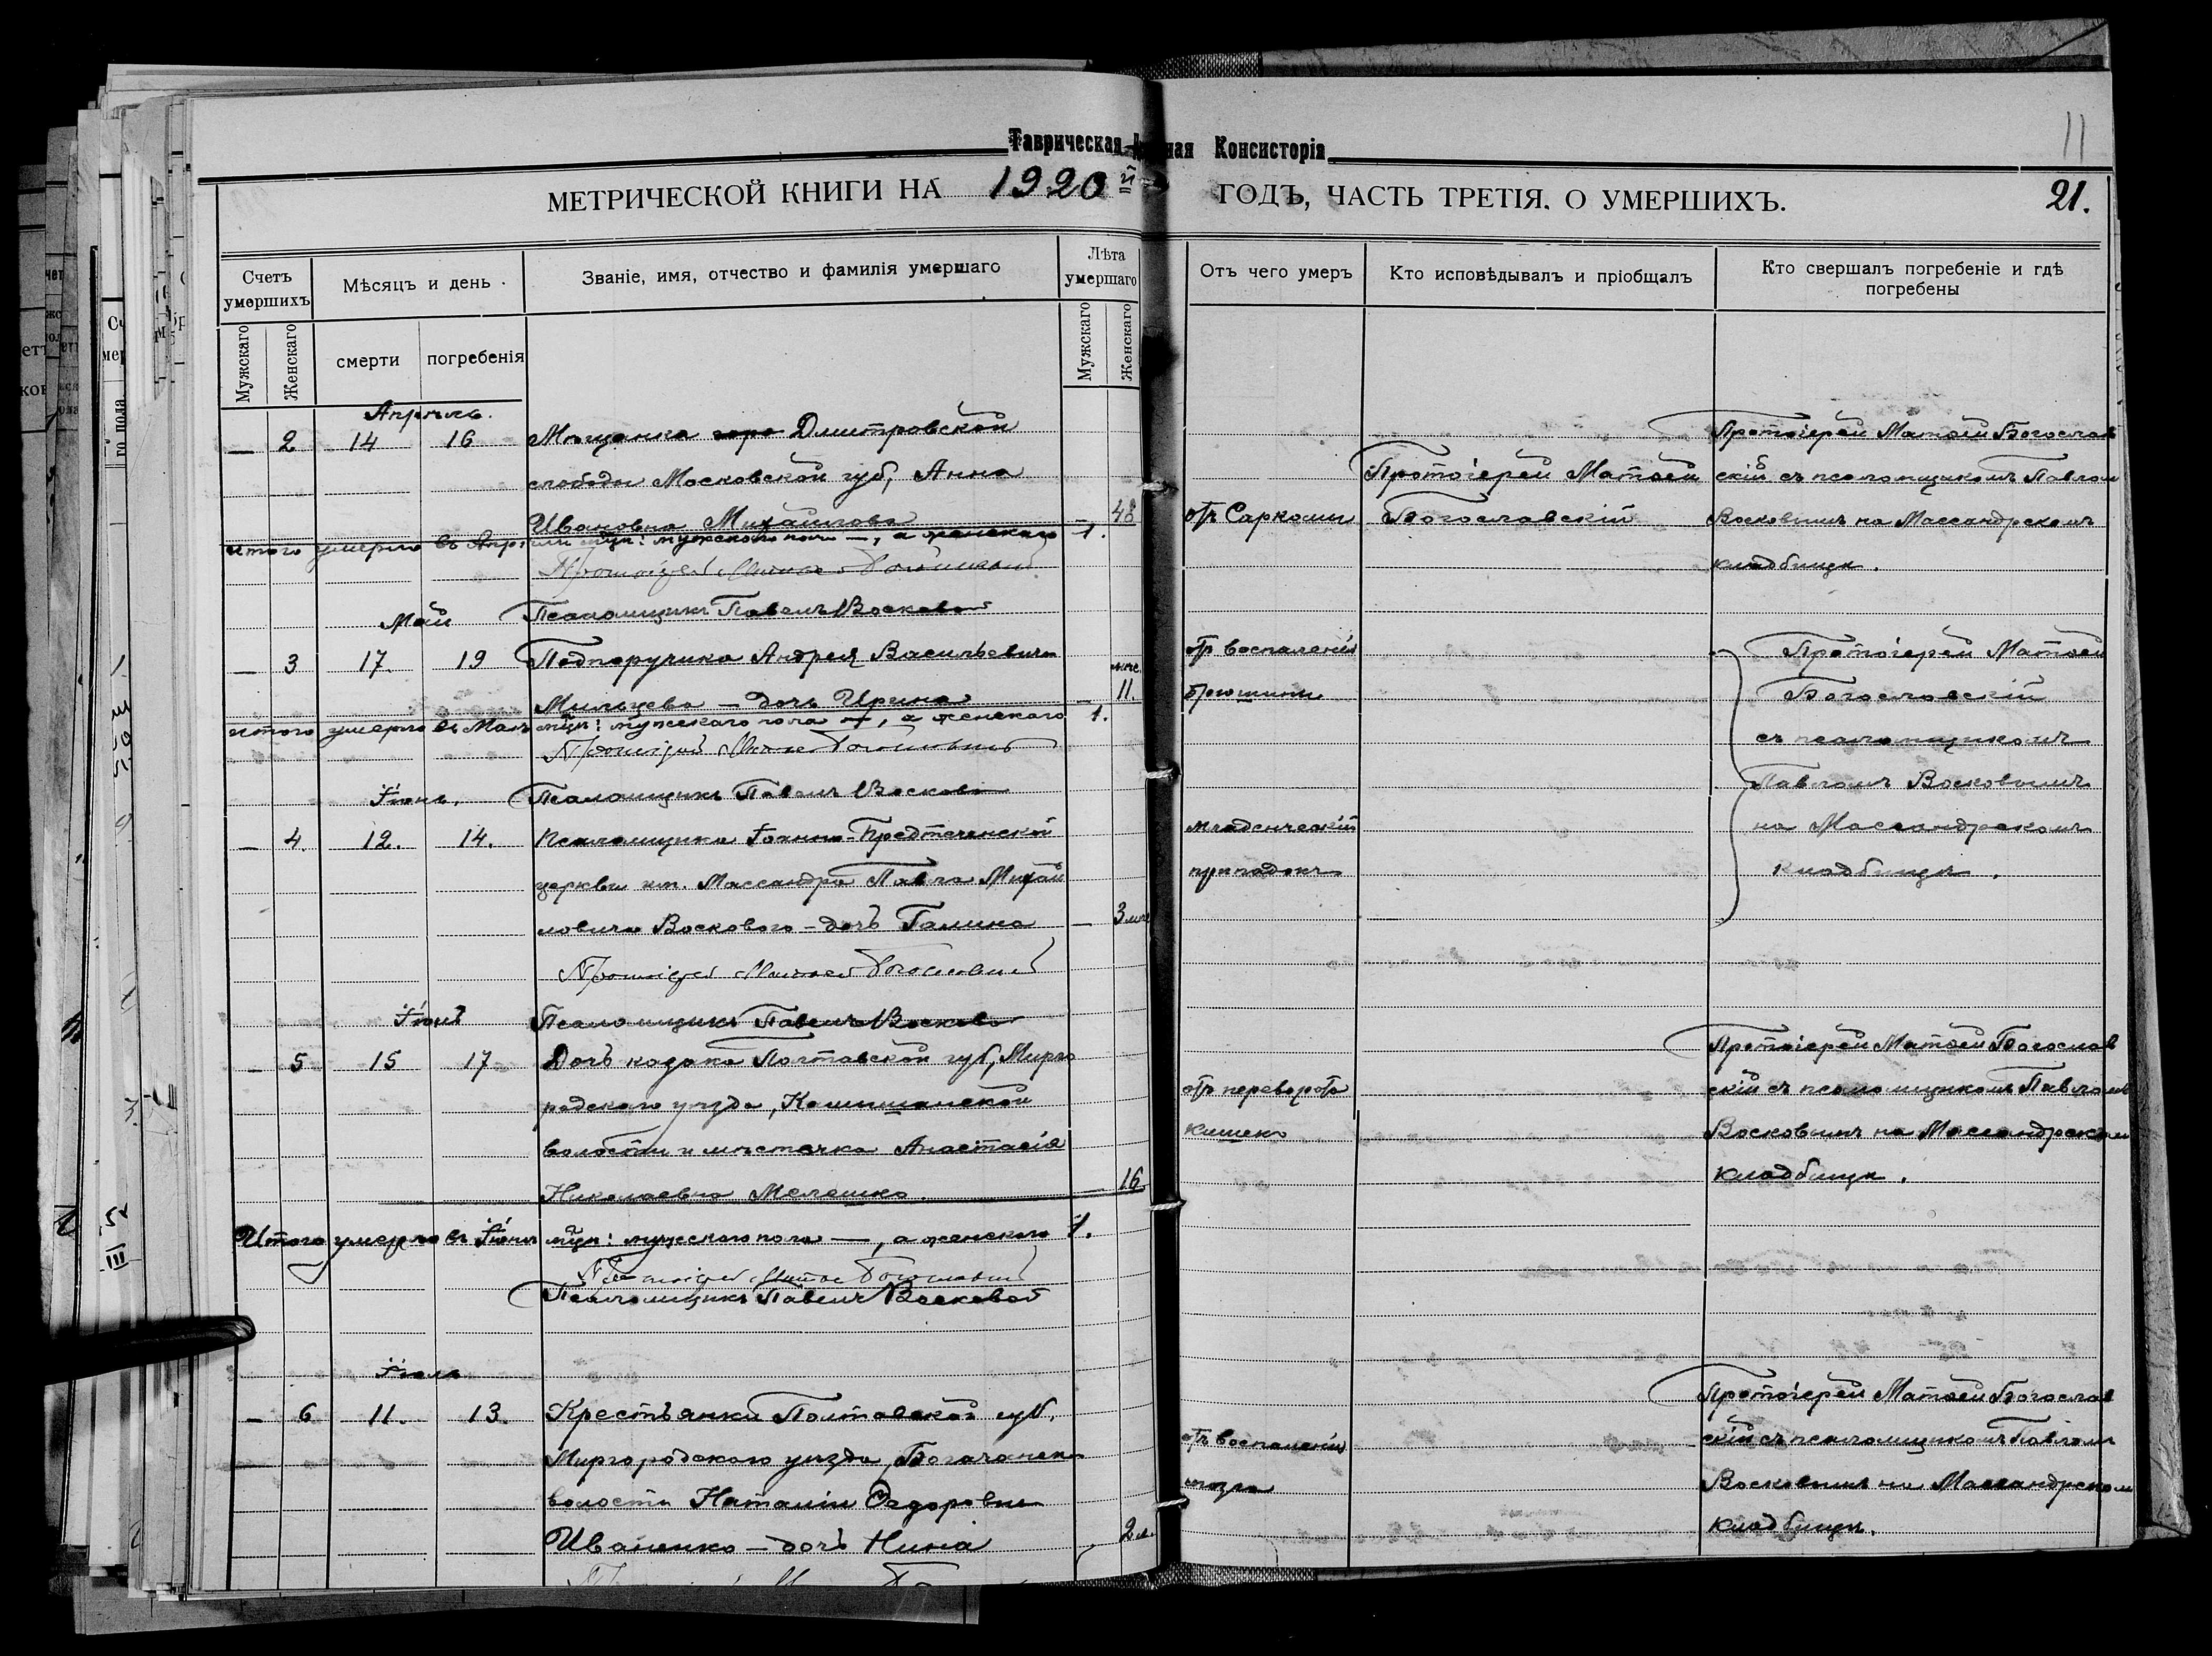 Таврическая ная Консисторія
11
МЕТРИЧЕСКОЙ КНИГИ НА 1920й ГОДЪ, ЧАСТЬ ТРЕТІЯ. О УМЕРШИХЪ.
21.
Счетъ умершихъ
Мѣсяцъ и день
Званіе, имя, отчество и фамилія умершаго
Лѣта умершаго
Отъ чего умеръ
Кто исповѣдывалъ и пріобщалъ
Кто свершалъ погребеніе и гдѣ погребены
Мужскаго
Женскаго
смерти
погребенія
Мужскаго
Женскаго
Апрѣль.
— 2 14 16 Мѣщанка Дмитровской
слободы Московской губ, Анна
Ивановна Михайлова — 48
отъ Саркомы
Протоіерей Матѳей
Богословскій
Протоіерей Матѳей Богослов
скій съ псаломщикомъ Павлом
Восковымъ на Массандрскомъ
кладбищѣ.
итого умерло въ Апрѣли мцѣ: мужского пола —, а женскаго 1.
Протоіерей Матѳей Богословскій
Псаломщикъ Павелъ Восковой
Май
— 3 17. 19 Подпоручика Андрея Васильевича
Мильцева — дочь Ирина — мце. 11.
отъ воспаленія
брюшины
Протоіерей Матѳей
Богословскій
съ псаломщикомъ
Павломъ Восковымъ
на Массандрскомъ
кладбищѣ.
итого умерло въ Маѣ мцѣ: мужескаго пола —, а женскаго 1.
Протоіерей Матѳей Богословскій
Іюнь.
Псаломщикъ Павелъ Восковой
— 4. 12. 14. Псаломщика Іоанно-Предтеченской
церкви им. Массандра Павла Михай
ловича Воскового — дочь Галина — 3 мце
младенческій
припадокъ
Протоіерей Матѳей Богословскій
Іюнь
Псаломщикъ Павелъ Восковой
— 5 15 17 Дочь козака Полтавской губ, Мирго
родского уѣзда,
волости и мѣстечка Анастасія
Николаевна Мелешко. — 16
отъ переворота
кишекъ
Протоіерей Матѳей Богослов
скій съ псаломщикомъ Павломъ
Восковымъ на Массандрском
кладбищѣ.
Итого умерло въ Іюнѣ мцѣ: мужескаго пола —, а женскаго 1.
Протоіерей Матѳей Богословскій
Псаломщикъ Павелъ Восковой
Іюль
— 6 11. 13. Крестьянки Полтавской губ.
Миргородскаго уѣзда, Богачанской
волости Наталіи Ѳедоровны
Иваненко — дочь Нина — 2 л.
отъ воспаленія
мозга
Протоіерей Матѳей Богослов
скій съ псаломщикомъ Павлом
Восковымъ на Массандрском
кладбищѣ.